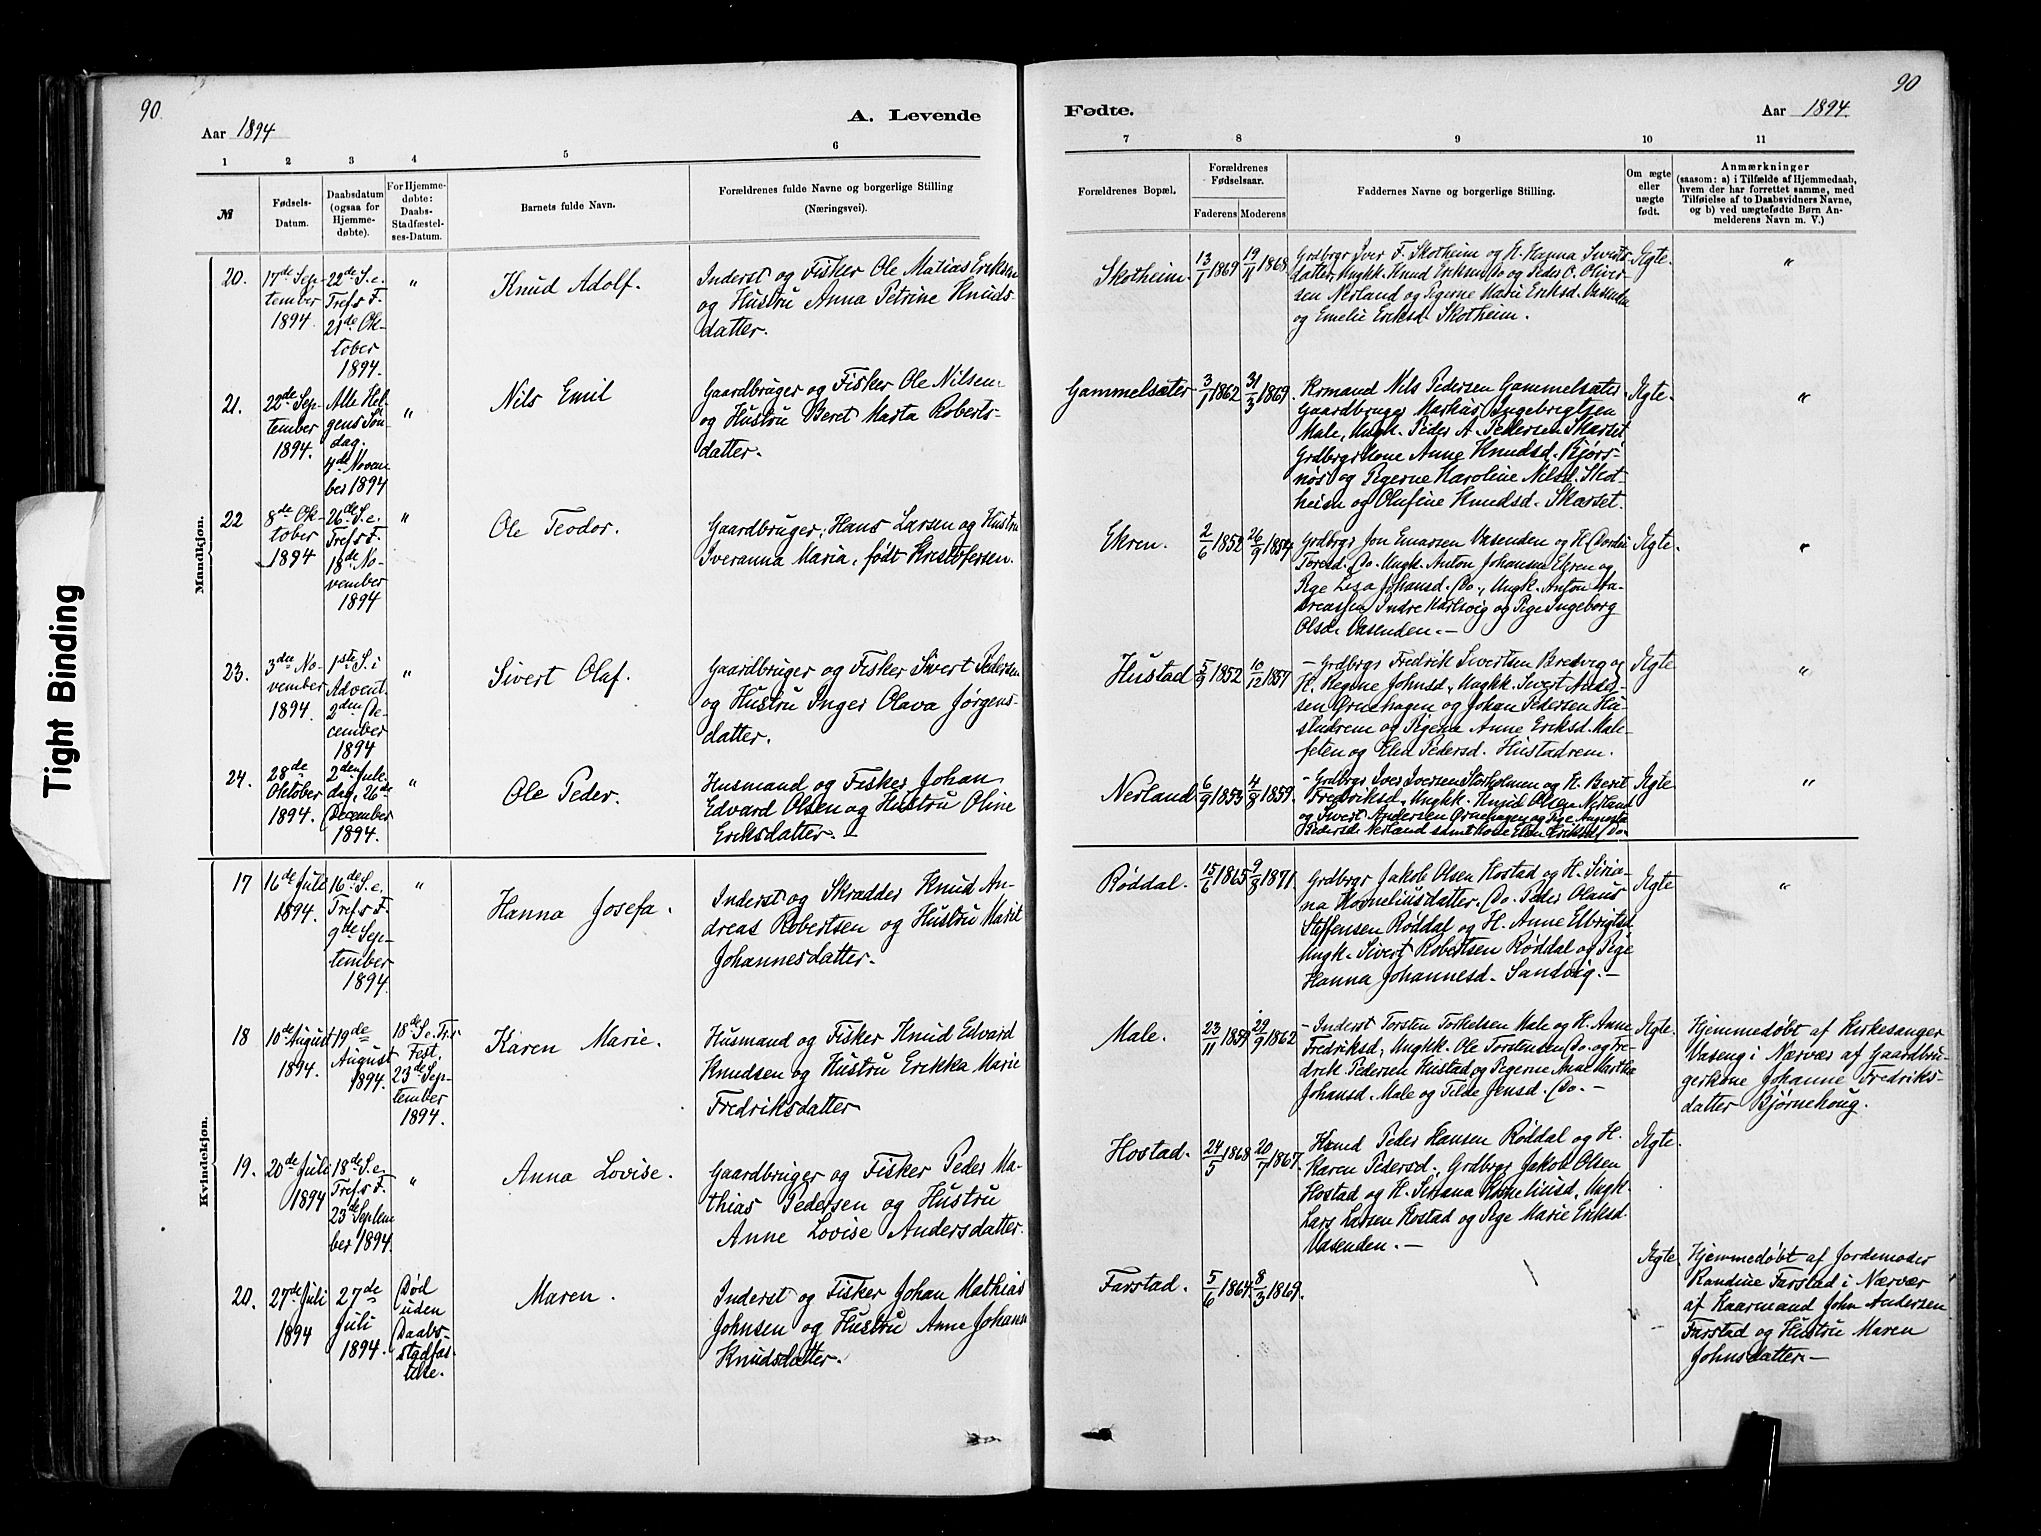 90
90
Aar 1894
A. Levende
Fødte.
Aar 1894.
1
2
3
4
5
6
7
8
9
10
11
№
Fødsels-
Datum.
Daabsdatum
(ogsaa for
Hjemme-
døbte).
For Hjemme-
døbte:
Daabs-
Stadfæstel-
ses-Datum.
Barnets fulde Navn.
Forældrenes fulde Navne og borgerlige Stilling
(Næringsvei).
Forældrenes Bopæl.
Forældrenes
Fødselsaar.
Faderens
Moderens
Faddernes Navne og borgerlige Stilling.
Om ægte
eller
uægte
født.
Anmærkninger
(saasom: a) i Tilfælde af Hjemmedaab,
hvem der har forrettet samme, med
Tilføielse af to Daabsvidners Navne,
og b) ved uægtefødte Børn An-
melderens Navn m. V.)
Tight Binding
Mandkjøn.
20.
17de Sep-
tember
1894.
22de S. e.
Tref's F.
21de Ok-
tober
1894.
"
Knud Adolf.
Inderst og Fisker Ole Matias Eriksen
og Hustru Anna Petrine Knuds-
datter.
Skotheim.
13/1 1869
19/11 1868
Grdbrgr Iver F. Skotheim og H. Hanna Siverts
datter, Ungkk. Knud Eriksen Do og Peder O. Oliver-
sen Nerland og Pigerne Marie Eriksd. Vasenden
og Emelie Eriksd. Skotheim.
Ægte.
"
21.
22de Sep-
tember
1894.
Alle Hel-
gens Søn-
dag.
4de Novem
ber 1894
"
Nils Emil
Gaardbruger og Fisker Ole Nilsen
og Hustru Beret Marta Roberts-
datter.
Gammelsæter
3/1 1862
31/3 1869
Krmand Nils Pedersen Gammelsæter
Gaardbruger Markus Ingebrigtsen
Male, Ungk. Peder A. Pedersen Skarset
Grdbrgrkone Anne Knudsd. Bjørs-
nøs og Pigerne Karoline Nilsd. Skot-
heim og Olufine Knudsd. Skarset.
Ægte.
"
22
8de Ok-
tober
1894
26de S. e.
Tref's F.
18de No-
vember
1894
"
Ole Teodor.
Gaardbruger, Hans Larsen og Hustru
Iveranna Maria, født Kristofersen.
Ekren.
2/6 1852
26/9 1854
Grdbrgr Jon Einarsen Vasenden og H. Dordei
Toresd. Do. Ungk. Anton Johansen Ekren og
Pige Lesa Johansd. Do., Ungk. Anton An-
dreassen Indre Harlsvig og Pige Ingeborg
Olsd. Vasenden.-
Ægte.
"
23.
3die No-
vember
1894.
1ste S. i
Advent.
2den De-
cember
1894
"
Sivert Olaf.
Gaardbruger og Fisker Sivert Pedersen
og Hustru Inger Olava Jørgens-
datter.
Hustad
5/9 1852
10/12 1857
- Grdbrgr Fredrik Sivertsen Bredvig og
H. Regine Johnsd., Ungkk. Sivert Ander-
sen Ornehagen og Johan Pedersen Hu-
stadrem og Pigerne Anne Eriksd. Male-
feten og Elen Pedersd. Hustadrem.
Ægte
"
24.
28de
Oktober
1894.
2den Jule-
dag, 26de
December
1894.
"
Ole Peder.
Husmand og Fisker Johan
Edvard Olsen og Hustru Oline
Eriksdatter.-
Nerland
6/9 1853
4/8 1859.
- Grdbrgr Iver Iversen Storholmen og H. Berit
Fredriksd., Ungkk. Knud Olsen Nerland
og Sivert Andersen Ornehagen og Pige Augusta
Pedersd. Nerland samt Kone Elen Eriksd. Do.
Ægte
"
Kvindekjøn.
17
16de Juli
1894.
16de S. e.
Tref's F.
9de Sep-
tember
1894.
"
Hanna Josefa.
Inderst og Skrædder Knud An-
dreas Robertsen og Hustru Marit
Johannesdatter.
Røddal.
15/6 1865
9/8 1871.
Grdbrgr Jakob Olsen Hostad og H. Siria-
na Korneliusdatter. Do. Peder Olaus
Steffensen Røddal og H. Anne Elbrigtsd.
Ungk. Sivert Robertsen Røddal og Pige
Hanna Johannesd. Sandvig.-
Ægte
"
18
10de August
1894.
19de
August
1894.
18de S. e. Tr.
Fest.
23de Sep-
tember
1894.
Karen Marie.
Husmand og Fisker Knud Edvard
Knudsen og Hustru Erikka Marie
Fredriksdatter
Male.
23/11 1859
29/9 1862
- Inderst Torsten Torkelsen Male og H. Anne
Fredriksd., Ungkk. Ole Torstensen Do. og Fre-
drik Pedersen Hustad og Pigerne Anne Martha
Johansd. Male og Tilde Jensd. Do.-
Ægte.
Hjemmedøbt af Kirkesanger
Vaseng i Nærvær af Gaardbru-
gerkone Johanne Fredriks-
datter Bjørnehoug.
19.
20de Juli
1894
18de S. e.
Tref's F.
23de Septem
ber 1894.
"
Anna Lovise.
Gaardbruger og Fisker Peder Ma-
thias Pedersen og Hustru
Anne Lovise Andersdatter.
Hostad.
24/5 1868
20/7 1867.
Kmd Peder Hansen Røddal og H.
Karen Pedersd., Grdbrgr Jakob Olsen
Hostad og H. Siriana Korneliusd., Ungk.
Lars Larsen Hostad og Pige Marie Eriksd.
Vasenden.-
Ægte.
20.
27de Juli
1894
27de
Juli
1894.
Død
uden
Daabs-
stadfæs-
telse.
Maren.
Inderst og Fisker Johan Mathias
Johnsen og Hustru Anne Johanna
Knudsdatter.
Farstad.
5/6 1864.
8/3 1869.
Ægte
Hjemmedøbt af Jordemoder
Kandine Farstad i Nærvær
af Kaarmand John Andersen
Farstad og Hustru Maren
Johnsdatter.-